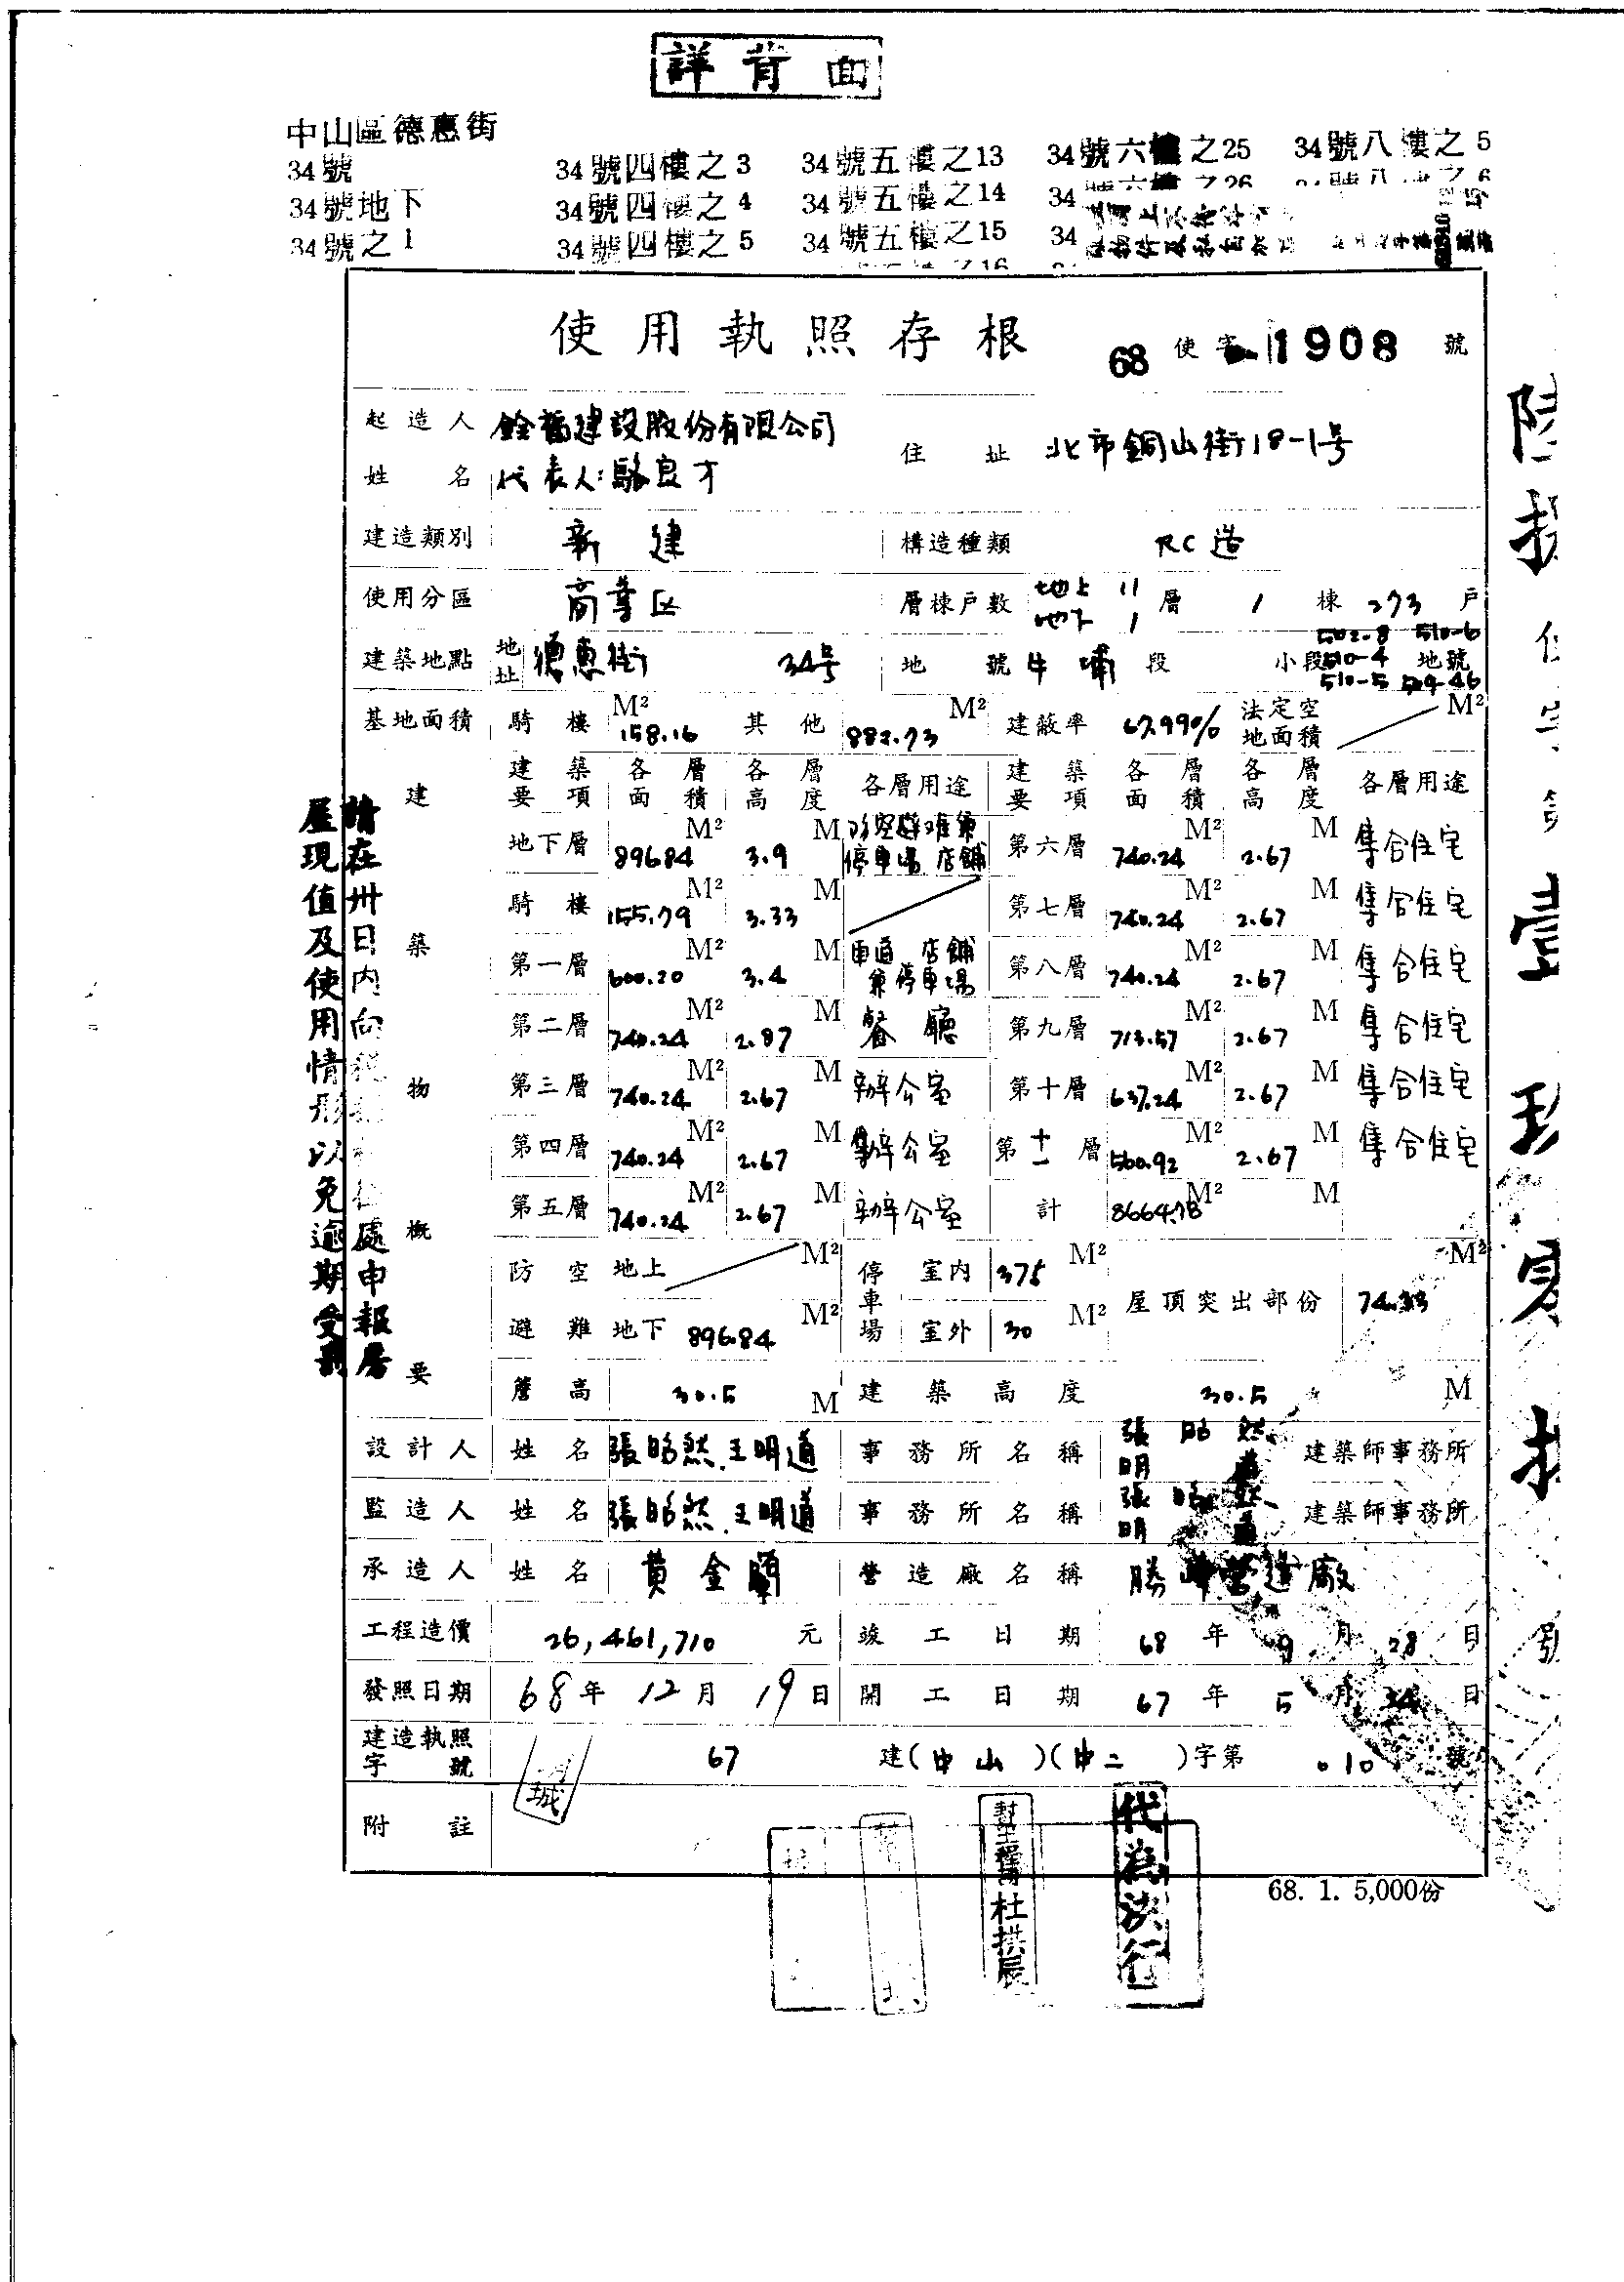 詳背面
中山區德惠街
34號 34號四樓之3 34號五樓之13 34號六樓之25 34號八樓之5
34號地下 34號四樓之4 34號五樓之14 34
34號之1 34號四樓之5 34號五樓之15 34
使用執照存根 68 使字 1908 號
起造人 建設股份有限公司
姓名 代表人:駱良才 住址 北市銅山街18-1号
建造類別 新建 構造種類 RC造
使用分區 商業区 層棟戶數 地上11 地下1 層 1 棟 273 戶
建築地點 地址 德惠街 34号 地號 牛埔 段 小段 502-8 510-6 510-4 510-5 地號
基地面積 騎樓 158.16 M² 其他 882.73 M² 建蔽率 67.99% 法定空地面積 M²
建築物概要
建築要項 各層面積 各層高度 各層用途 建築要項 各層面積 各層高度 各層用途
地下層 896.84 M² 3.9 M 防空避難兼停車場 店舖 第六層 740.24 M² 2.67 M 集合住宅
騎樓 155.79 M² 3.33 M 第七層 740.24 M² 2.67 M 集合住宅
第一層 600.20 M² 3.4 M 車道 店舖兼停車場 第八層 740.24 M² 2.67 M 集合住宅
第二層 740.24 M² 2.87 M 餐廳 第九層 713.57 M² 2.67 M 集合住宅
第三層 740.24 M² 2.67 M 辦公室 第十層 637.24 M² 2.67 M 集合住宅
第四層 740.24 M² 2.67 M 辦公室 第十一層 560.92 M² 2.67 M 集合住宅
第五層 740.24 M² 2.67 M 辦公室 計 8664.78 M² M
防空避難 地上 M² 停車場 室內 375 M² 屋頂突出部份 74.33 M²
地下 896.84 M² 室外 30 M²
簷高 30.5 M 建築高度 30.5 M
設計人 姓名 張昭然.王明道 事務所名稱 張昭然 明道 建築師事務所
監造人 姓名 張昭然.王明道 事務所名稱 張昭然 明道 建築師事務所
承造人 姓名 黃金 營造廠名稱 勝 營造廠
工程造價 26,461,710 元 竣工日期 68 年 9 月 28 日
發照日期 68 年 12 月 19 日 開工日期 67 年 5 月 日
建造執照字號 67 建(中山)(中二)字第 010 號
附註
68. 1. 5,000份
請在卅日內向稅 處申報房
屋現值及使用情形以免逾期受罰
代為決行
杜拱辰
城